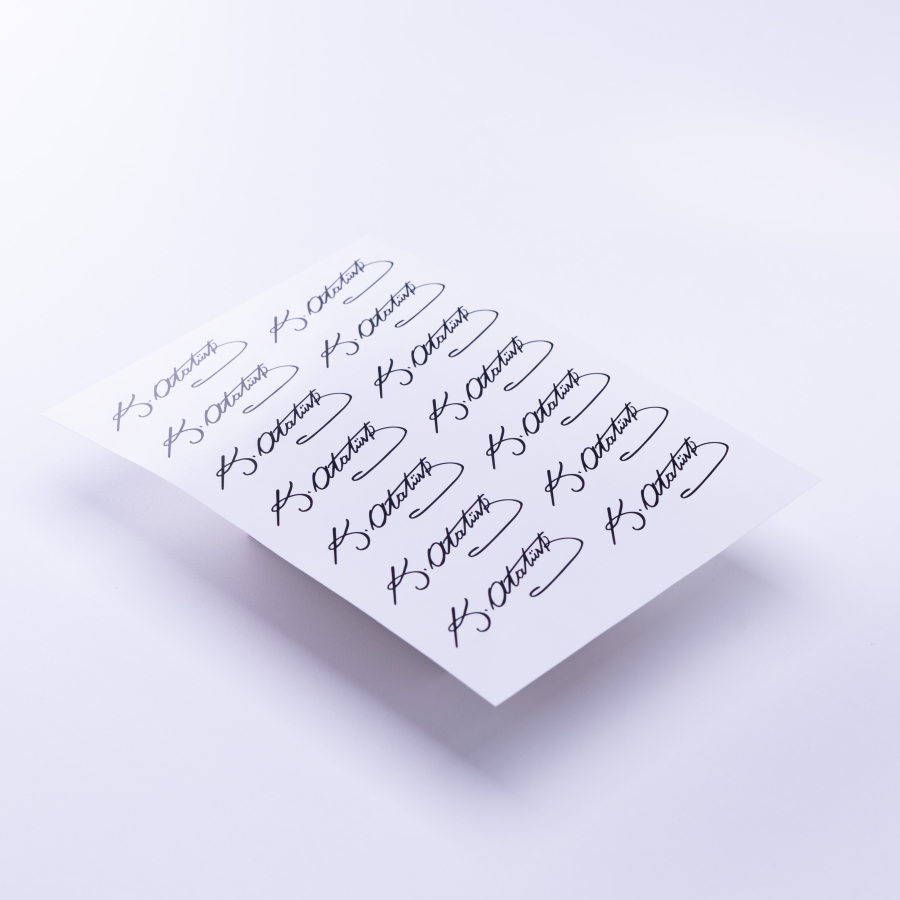 K. Atatürk K. Atatürk
K. Atatürk K. Atatürk
K. Atatürk K. Atatürk
K. Atatürk K. Atatürk
K. Atatürk K. Atatürk
K. Atatürk K. Atatürk
K. Atatürk K. Atatürk